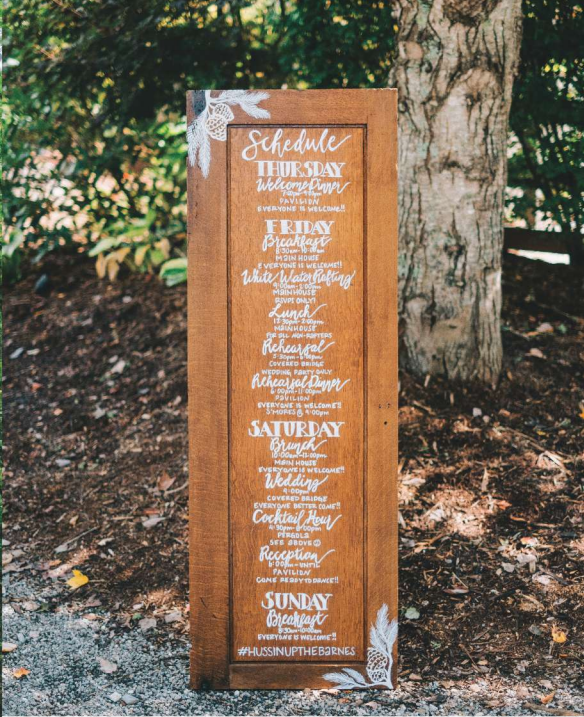 Schedule
THURSDAY
Welcome Dinner
PAVILION
EVERYONE IS WELCOME!!
FRIDAY
Breakfast
8:30am-10:00am
MAIN HOUSE
EVERYONE IS WELCOME!!
White Water Rafting
9:00am-2:00pm
MAIN HOUSE
RSVPS ONLY!
Lunch
MAIN HOUSE
FOR ALL NON-RAFTERS
Rehearsal
COVERED BRIDGE
WEDDING PARTY ONLY
Rehearsal Dinner
6:00pm-11:00pm
PAVILION
EVERYONE IS WELCOME!!
S'MORES @ 9:00pm
SATURDAY
Brunch
10:00am-12:00pm
MAIN HOUSE
EVERYONE IS WELCOME!!
Wedding
4:00pm
COVERED BRIDGE
EVERYONE BETTER COME!!
Cocktail Hour
4:30pm-6:00pm
PERGOLA
SEE ABOVE
Reception
6:00pm-UNTIL
PAVILION
COME READY TO DANCE!!
SUNDAY
Breakfast
8:30am-10:00am
EVERYONE IS WELCOME!!
#HUSSINUPTHEBARNES